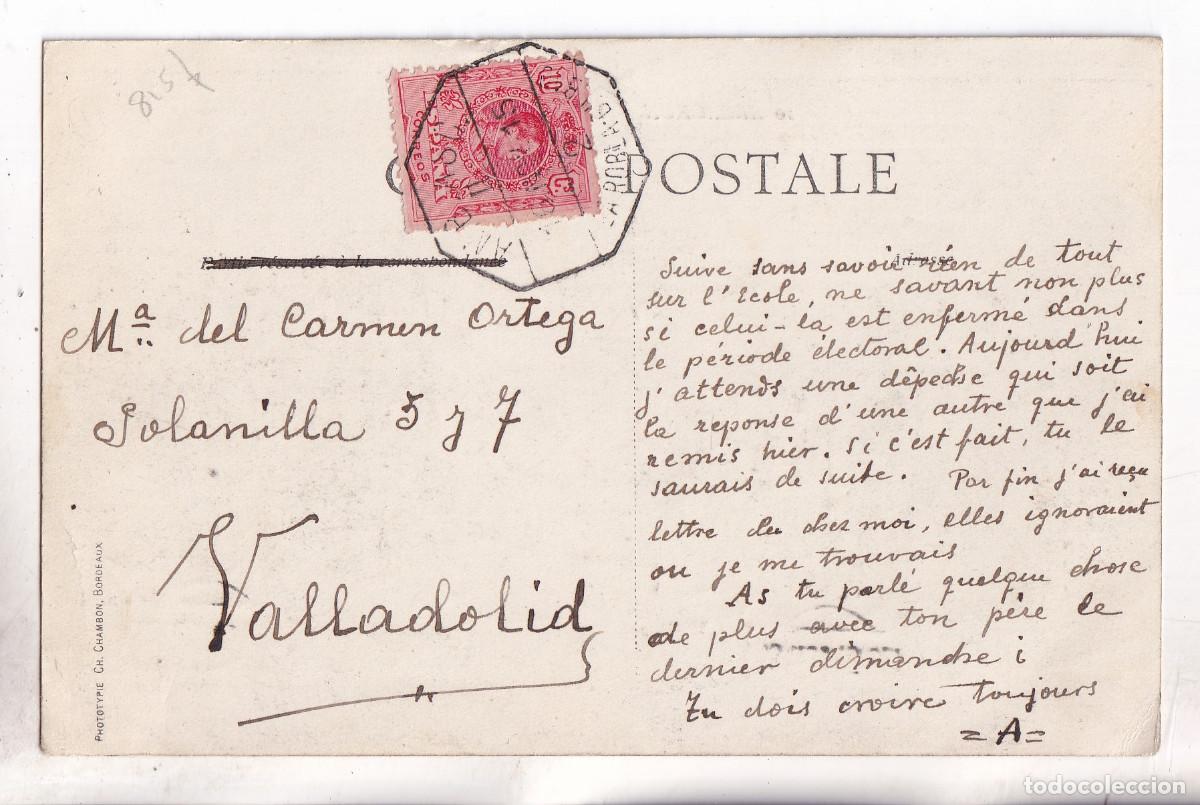 8157
POSTALE
10 Cs
CORREOS
ESPAÑA
LA ROBLA-B
Partie réservée à la correspondance
Adresse
Mª del Carmen Ortega
Solanilla 5 y 7
Valladolid
Suive sans savoir rien de tout
sur l'Ecole, ne savant non plus
si celui-la est enfermé dans
le période électoral. Aujourd'hui
j'attends une dêpeche qui soit
la reponse d'une autre que j'ai
remis hier. Si c'est fait, tu le
saurais de suite. Par fin j'ai reçu
lettre du chez moi, elles ignoraient
ou je me trouvais
As tu parlé quelque chose
de plus avec ton père le
dernier dimanche ¡
Tu dois croire toujours
=A=
PHOTOTYPIE CH. CHAMBON, BORDEAUX
todocoleccion